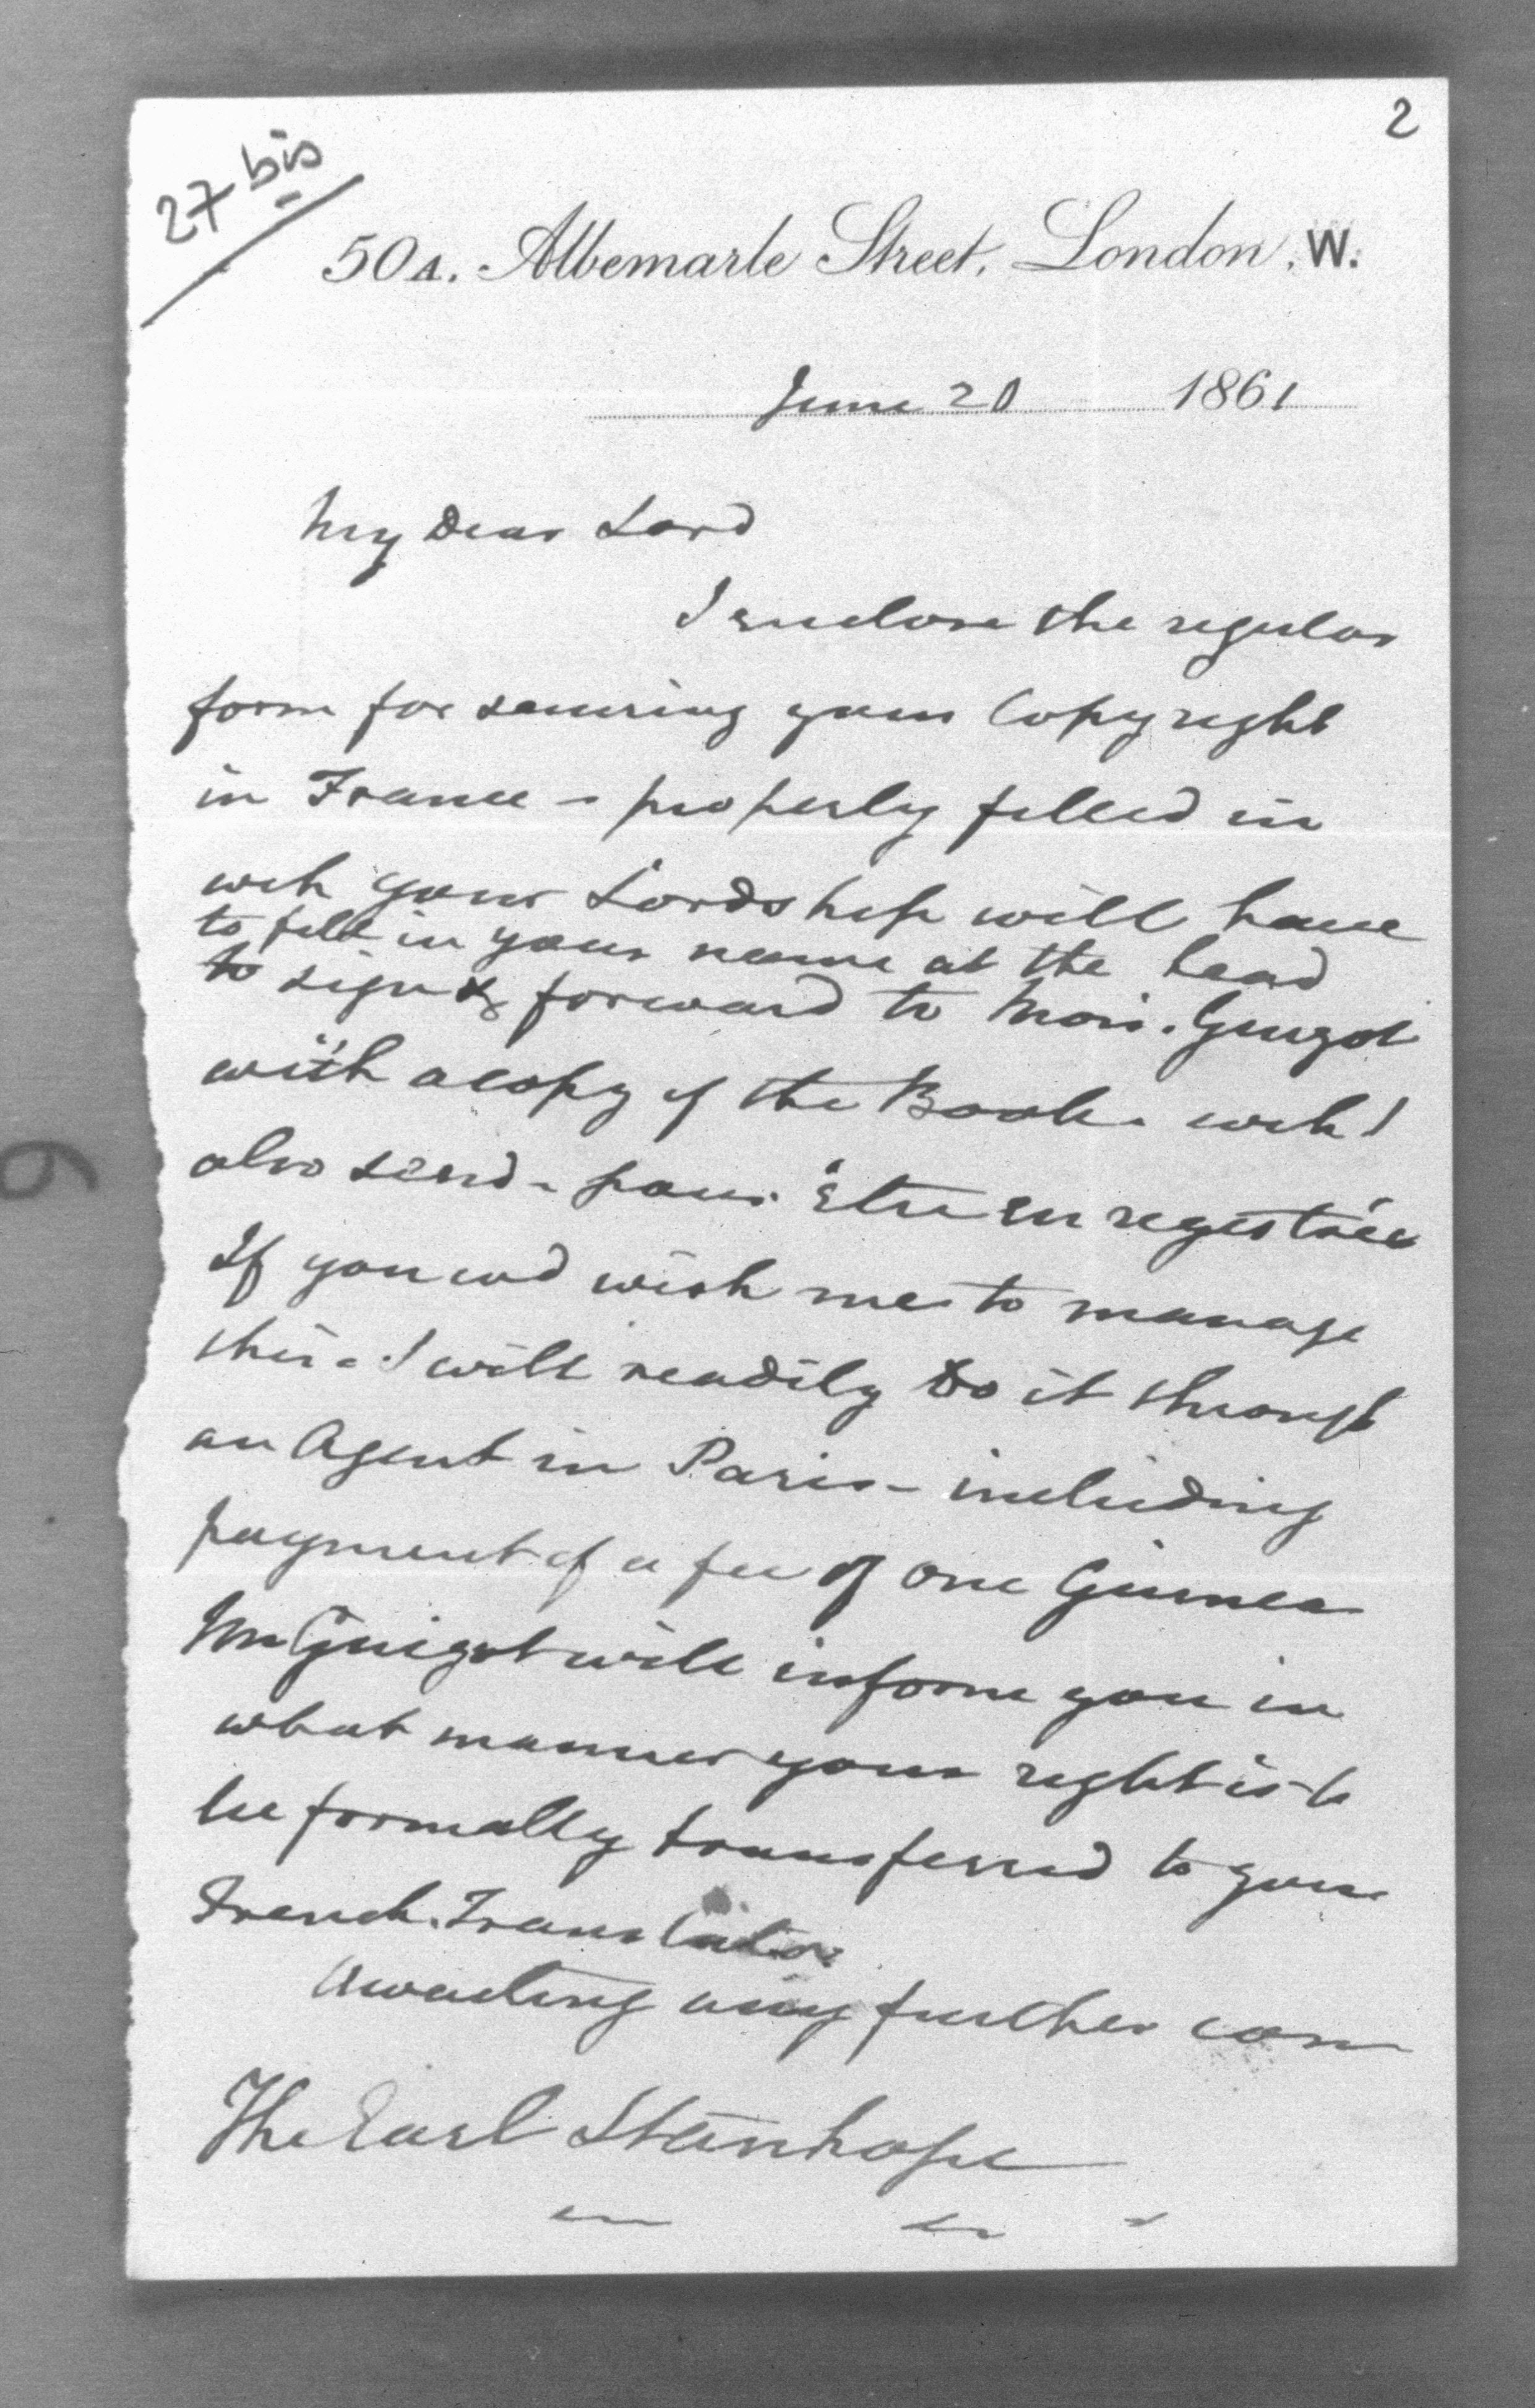 2
27 bis
50A. Albemarle Street, London, W.
June 20 1861
My Dear Lord
I enclose the regular
form for securing your Copyright
in France - properly filled in
wch your Lordship will have
to fill in your name at the head
to sign & forward to Mons. Guizot
with a copy of the Book. wch I
also send - pour être enregistrée
If you wd wish me to manage
this - I will readily do it through
an Agent in Paris - including
payment of a fee of one Guinea
Mr Guizot will inform you in
what manner your right is to
be formally transferred to your
French Translator
Awaiting any further com
The Earl Stanhope